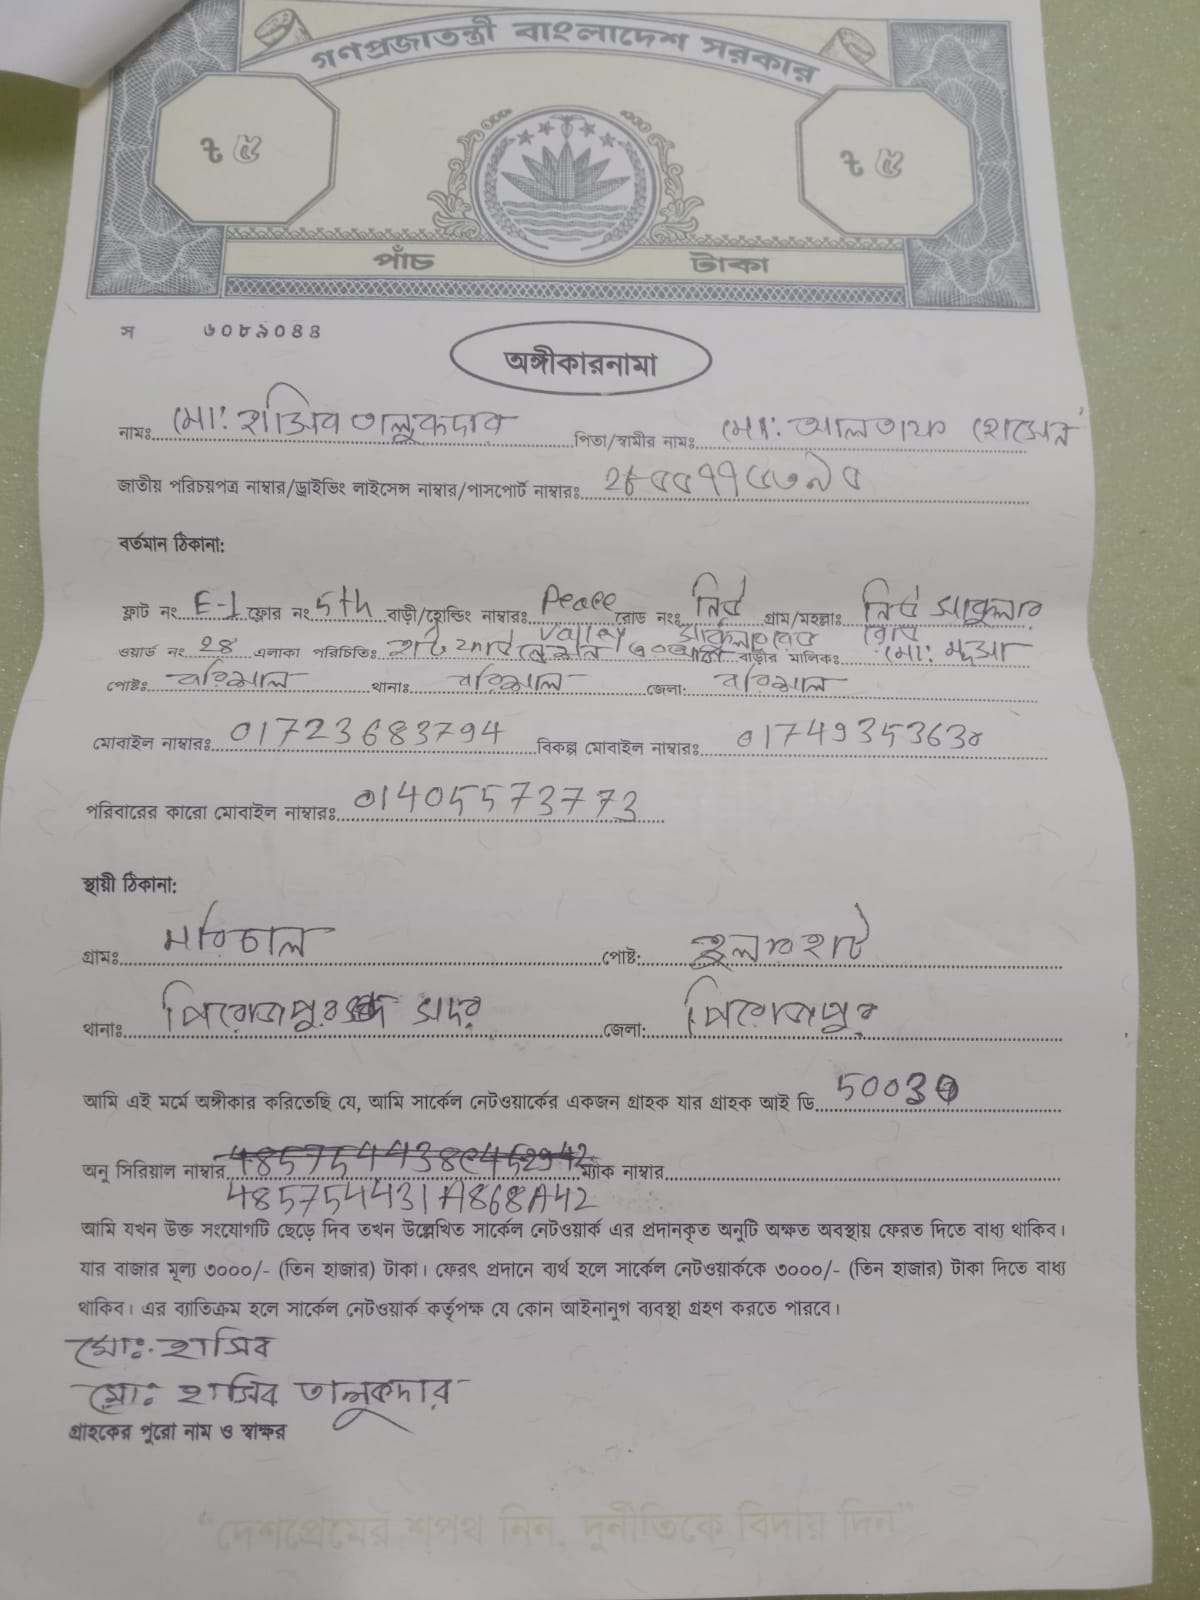 গণপ্রজাতন্ত্রী বাংলাদেশ সরকার
৳ ৫ ৳ ৫
পাঁচ টাকা
স ৬০৮৯০৪৪
অঙ্গীকারনামা
নামঃ মো: হাসিব তালুকদার পিতা/স্বামীর নামঃ মো: আলতাফ হোসেন
জাতীয় পরিচয়পত্র নাম্বার/ড্রাইভিং লাইসেন্স নাম্বার/পাসপোর্ট নাম্বারঃ
বর্তমান ঠিকানা:
ফ্লাট নং E-1 ফ্লোর নং 5th বাড়ী/হোল্ডিং নাম্বারঃ Peace Valley রোড নংঃ নিউ গ্রাম/মহল্লাঃ নিউ সার্কুলার রোড
ওয়ার্ড নং ২৪ এলাকা পরিচিতিঃ বাড়ীর মালিকঃ মো:
পোষ্টঃ বরিশাল থানাঃ বরিশাল জেলা: বরিশাল
মোবাইল নাম্বারঃ 01723683794 বিকল্প মোবাইল নাম্বারঃ
পরিবারের কারো মোবাইল নাম্বারঃ 01405573773
স্থায়ী ঠিকানা:
গ্রামঃ মরিচাল পোষ্ট: হুলারহাট
থানাঃ পিরোজপুর সদর জেলা: পিরোজপুর
আমি এই মর্মে অঙ্গীকার করিতেছি যে, আমি সার্কেল নেটওয়ার্কের একজন গ্রাহক যার গ্রাহক আই ডি 50030
অনু সিরিয়াল নাম্বার ম্যাক নাম্বার
485754431A868A42
আমি যখন উক্ত সংযোগটি ছেড়ে দিব তখন উল্লেখিত সার্কেল নেটওয়ার্ক এর প্রদানকৃত অনুটি অক্ষত অবস্থায় ফেরত দিতে বাধ্য থাকিব।
যার বাজার মূল্য ৩০০০/- (তিন হাজার) টাকা। ফেরৎ প্রদানে ব্যর্থ হলে সার্কেল নেটওয়ার্ককে ৩০০০/- (তিন হাজার) টাকা দিতে বাধ্য
থাকিব। এর ব্যাতিক্রম হলে সার্কেল নেটওয়ার্ক কর্তৃপক্ষ যে কোন আইনানুগ ব্যবস্থা গ্রহণ করতে পারবে।
মোঃ হাসিব
মোঃ হাসিব তালুকদার
গ্রাহকের পুরো নাম ও স্বাক্ষর
“দেশপ্রেমের শপথ নিন, দুর্নীতিকে বিদায় দিন”